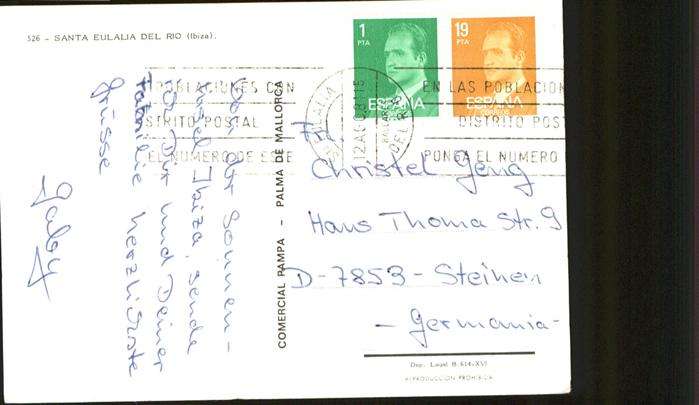 526 - SANTA EULALIA DEL RIO (Ibiza).
Von der Sonnen-
insel Ibiza, sende
ich Dir und Deiner
Familie herzlichste
Grüsse
Gaby
COMERCIAL RAMPA - PALMA DE MALLORCA
1
PTA
ESPAÑA
19
PTA
ESPAÑA
POBLACIONES CON
DISTRITO POSTAL
EL NUMERO DE ESE
EN LAS POBLACION
DISTRITO POST
PONGA EL NUMERO
Christel Jeng
Hans Thoma Str. 9
D-7853 - Steinen
- Germania -
Dep. Legal B. 614-XVI
REPRODUCCION PROHIBIDA